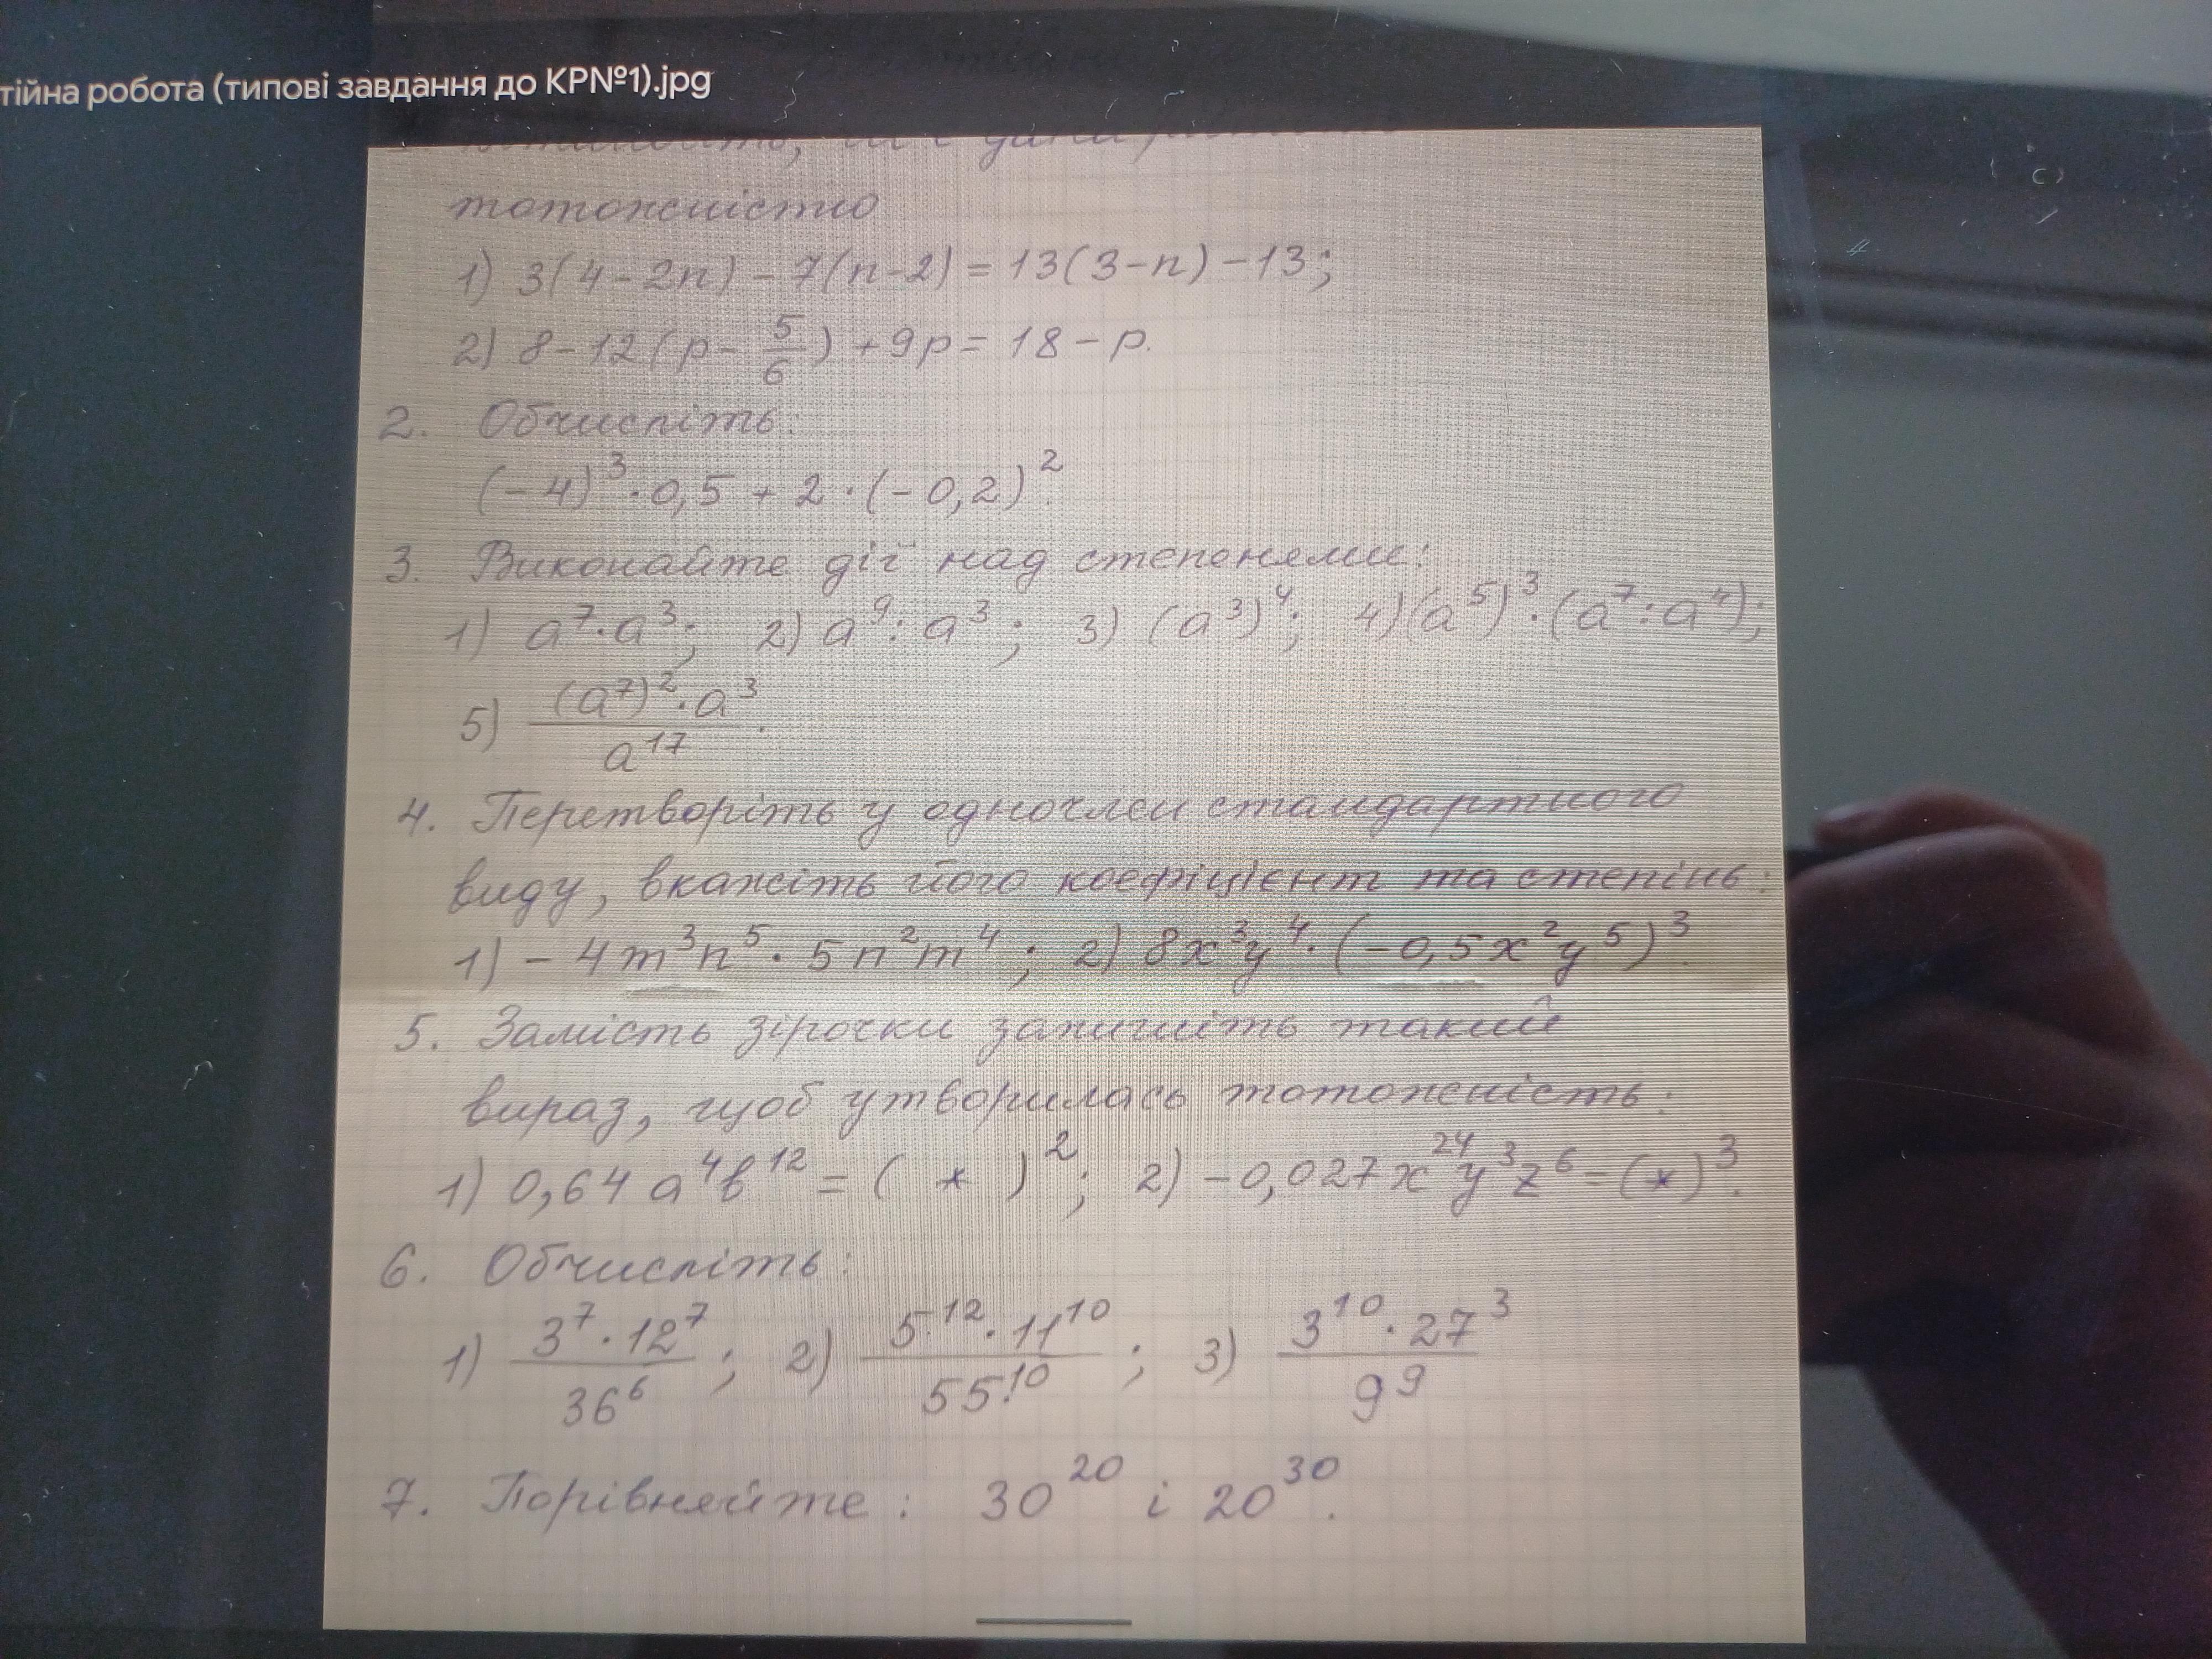 тійна робота (типові завдання до КР№1).jpg
тотожністю
1) 3(4-2n) - 7(n-2) = 13(3-n) - 13;
2) 8 - 12(p - 5/6) + 9p = 18 - p.
2. Обчисліть:
(-4)³·0,5 + 2·(-0,2)².
3. Виконайте дії над степенями:
1) a⁷·a³; 2) a⁹:a³; 3) (a³)⁴; 4) (a⁵)³·(a⁷:a⁴);
5) (a⁷)²·a³ / a¹⁷.
4. Перетворіть у одночлен стандартного
виду, вкажіть його коефіцієнт та степінь:
1) -4m³n⁵·5n²m⁴; 2) 8x³y⁴·(-0,5x²y⁵)³.
5. Замість зірочки запишіть такий
вираз, щоб утворилась тотожність:
1) 0,64a⁴b¹² = ( * )²; 2) -0,027x²⁴y³z⁶ = (*)³.
6. Обчисліть:
1) 3⁷·12⁷ / 36⁶; 2) 5¹²·11¹⁰ / 55¹⁰; 3) 3¹⁰·27³ / 9⁹
7. Порівняйте: 30²⁰ і 20³⁰.